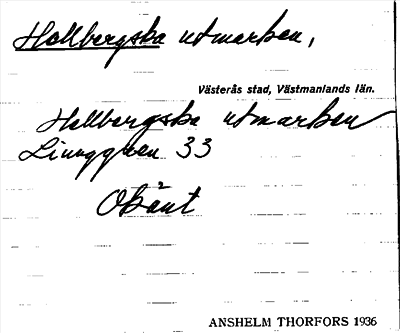 Hallbergska utmarken,
Västerås stad, Västmanlands län.
Hallbergska utmarken
33
Okänt
ANSHELM THORFORS 1936